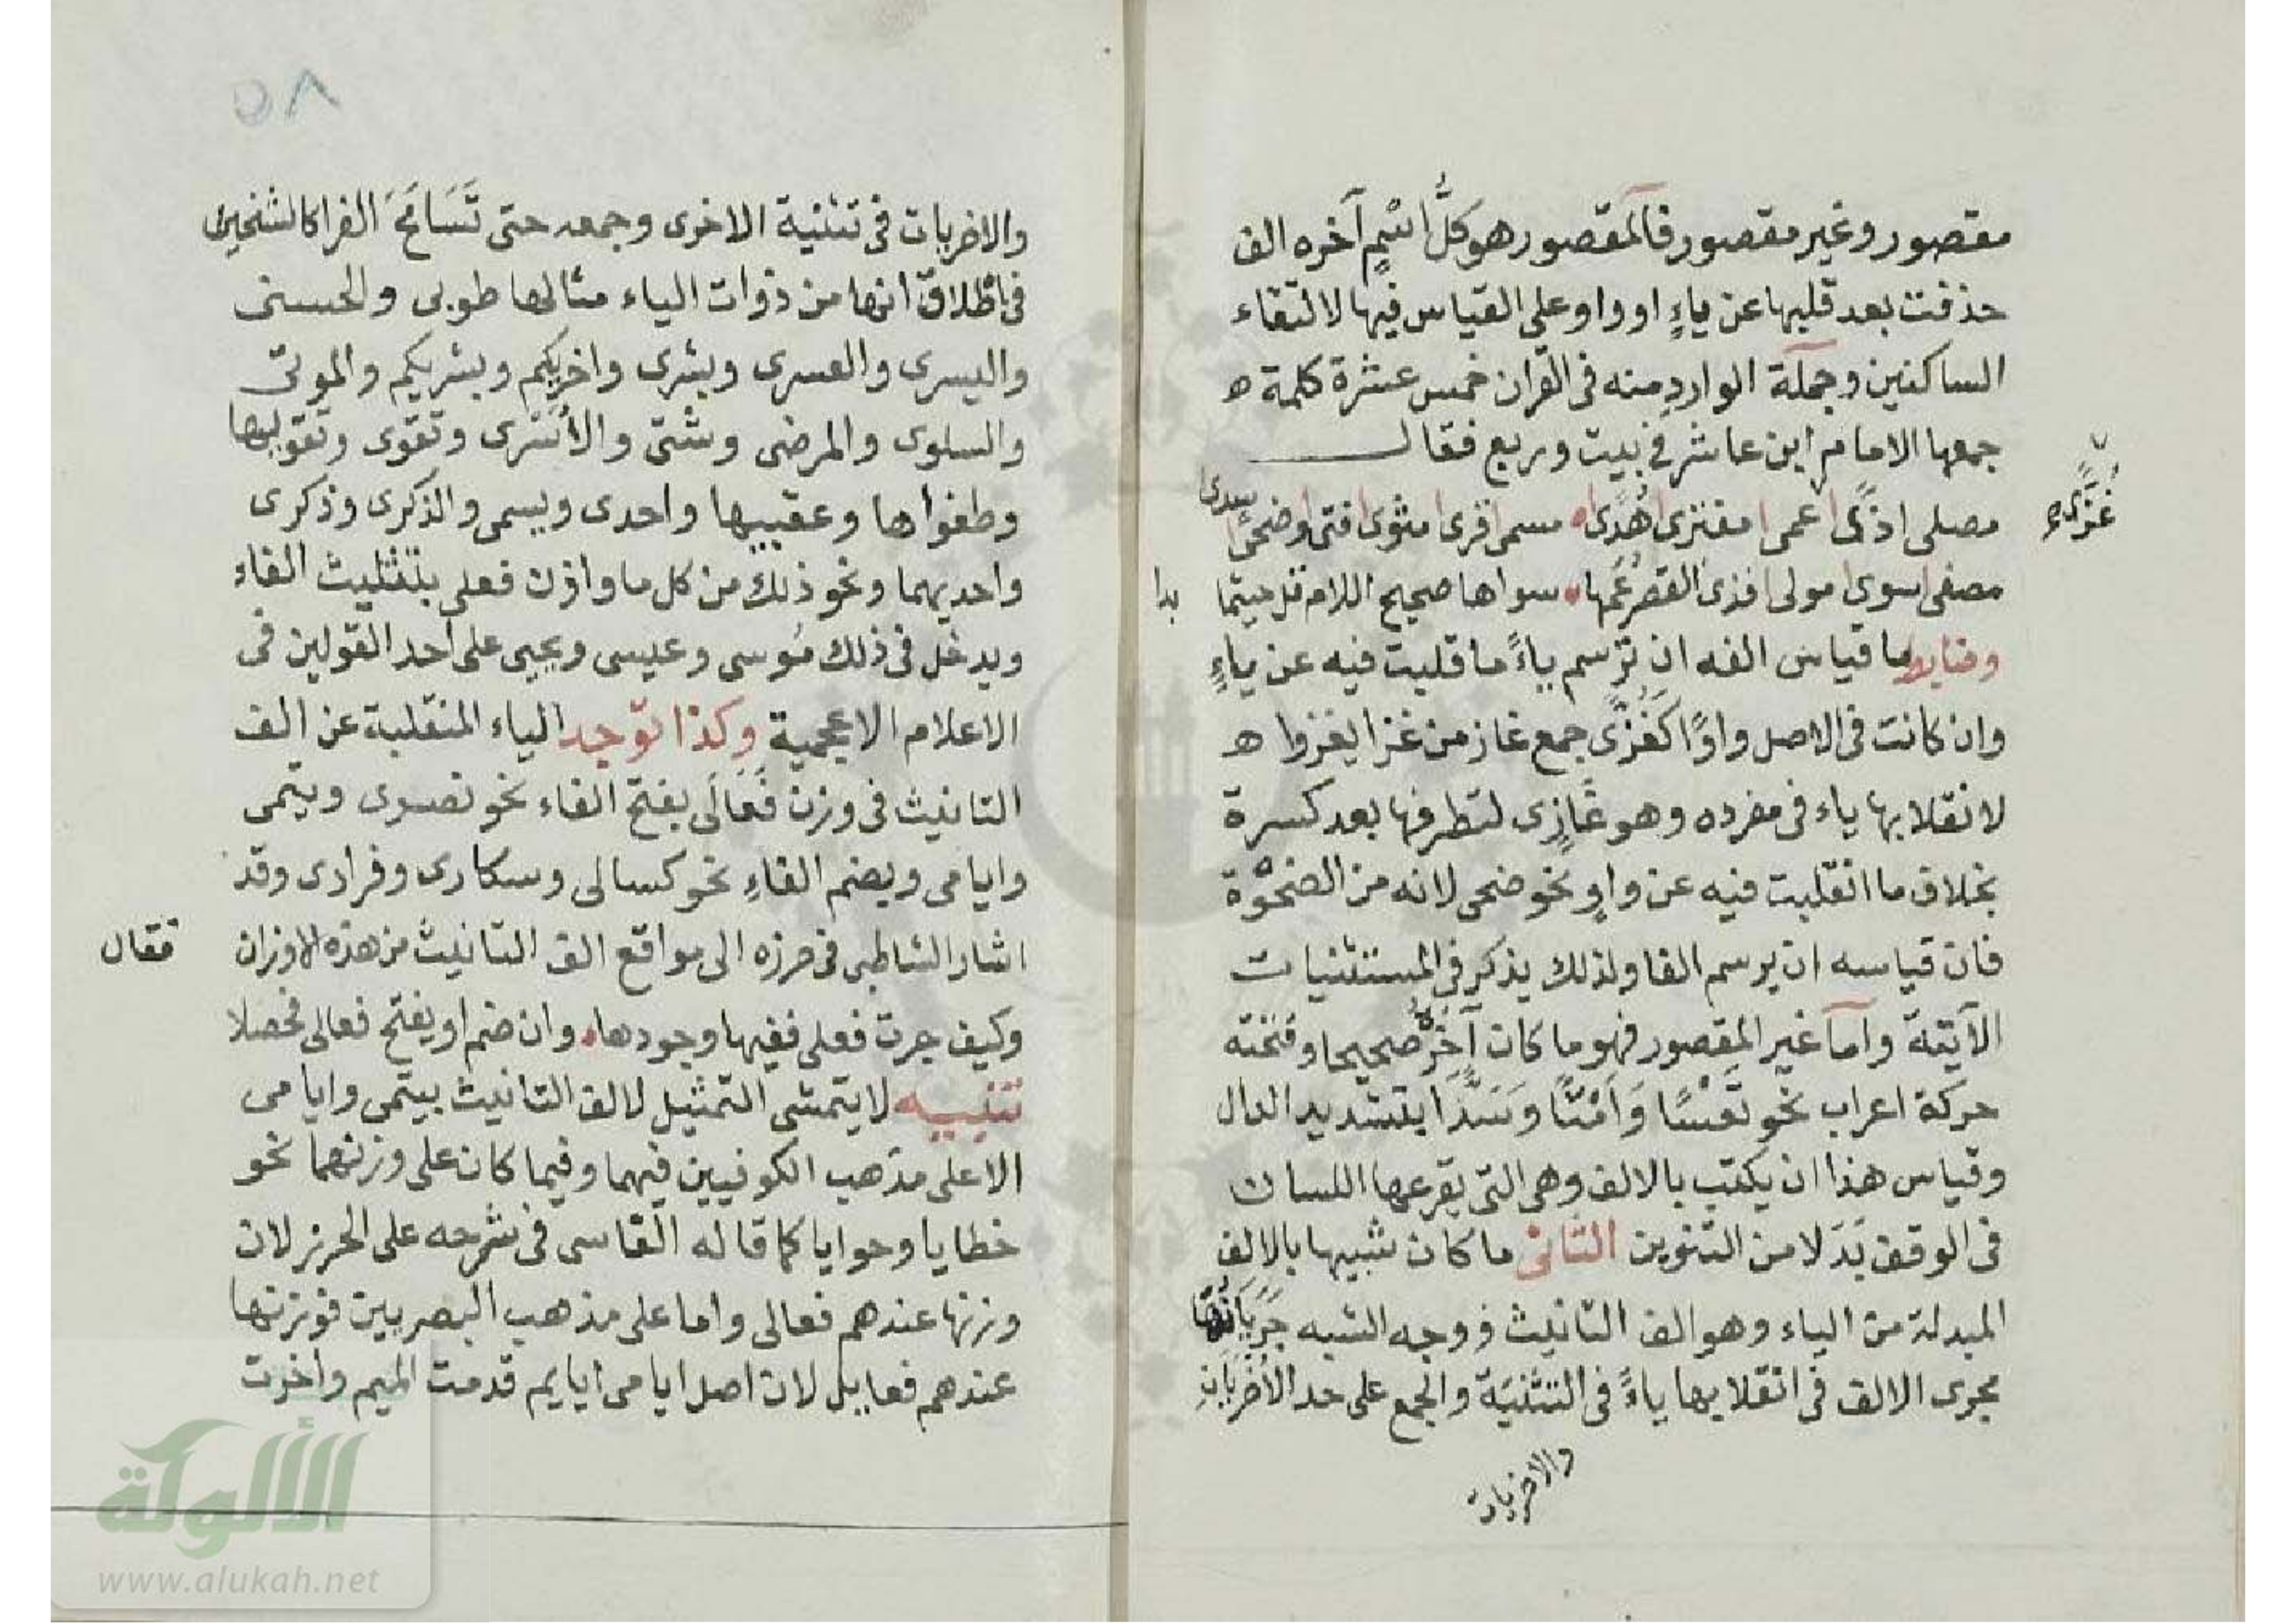 مقصور وغير مقصور فالمقصور هو كلُّ اسْمٍ آخره الف
حذفت بعد قلبها عن ياءٍ او واو على القياس فيها لالتقاء
الساكنين وجملة الوارد منه فى القران خمس عشرة كلمة ه
جمعها الامام ابن عاشر فى بيت وربع فقال
غُزًّى
مصلى اذًى عمى مفترى هُدًى مسمى قرى مثوى فتى وضحًى سدى
مصفى سوى مولى فذى القصر عُمها سواها صحيح اللام قل حيثما بدا
وضابط ما قياس الفه ان ترسم ياءً ما قلبت فيه عن ياءٍ
وان كانت فى الاصل واوًا كَغُزًّى جمع غاز من غزا يغزوا ه
لانقلابها ياء فى مفرده وهو غَازِى لتطرفها بعد كسرة
بخلاف ما انقلبت فيه عن واوٍ نحو ضحى لانه من الضحْوَة
فان قياسه ان يرسم الفا ولذلك يذكر فى المستثنيات
الآتية واما غير المقصور فهو ما كان آخِرُهُ صحيحا وفتحته
حركة اعراب نحو تَعْسًا وَاَمْتًا وَسَدًّا بتشديد الدال
وقياس هذا ان يكتب بالالف وهى التى يقرعها اللسان
فى الوقف بَدَلا من التنوين الثانى ما كان شبيها بالالف
المبدلة من الياء وهو الف التانيث ووجه الشبه جَرَيَانُهَا
مجرى الالف فى انقلابها ياءً فى التثنية والجمع على حد الأُخْرَيَانِ
والاخريات
٥٨
والاخريات فى تثنية الاخرى وجمعه حتى تَسَامَحَ الفرا كالشيخين
فى اطْلاق انها من ذوات الياء مثالها طوبى والحسنى
واليسرى والعسرى وبشرى واخريكم وبشريكم والموتى
والسلوى والمرضى وشتى والأسْرى وتقوى وتقويها
وطغواها وعقبيها واحدى وسيمى والذكرى وذكرى
واحديهما ونحو ذلك من كل ما وازن فعلى بتثليث الفاءِ
ويدخل فى ذلك مُوسى وعيسى ويحيى على احد القولين فى
الاعلام الاعجمية وكذا توجد الياء المنقلبة عن الف
التانيث فى وزن فَعَالَى بفتح الفاء نحو نصرى ويتمى
وايامى وبضم الفاءِ نحو كسالى وسكارى وفرادى وقد
اشار الشاطبى فى حرزه الى مواقع الف التانيث من هذه الاوزان فقال
وكيف جرت فعلى ففيها وجودها وان ضم او يفتح فعالى فحصلا
تنبيه لا يتمشى التمثيل لالف التانيث بيتمى وايامى
الا على مذهب الكوفيين فيهما وفيما كان على وزنهما نحو
خطايا وحوايا كما قاله الفاسى فى شرحه على الحرز لان
وزنها عندهم فعالى واما على مذهب البصريين فوزنها
عندهم فعايل لان اصل ايامى ايايم قدمت الميم واخرت
الألوكة
www.alukah.net